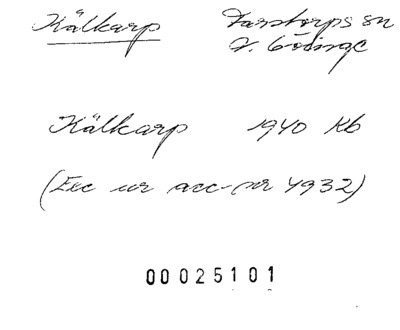 Kälkarp Farstorps sn
V. Göinge
Kälkarp 1940 Kb
(Exc ur acc-nr 4932)
00025101